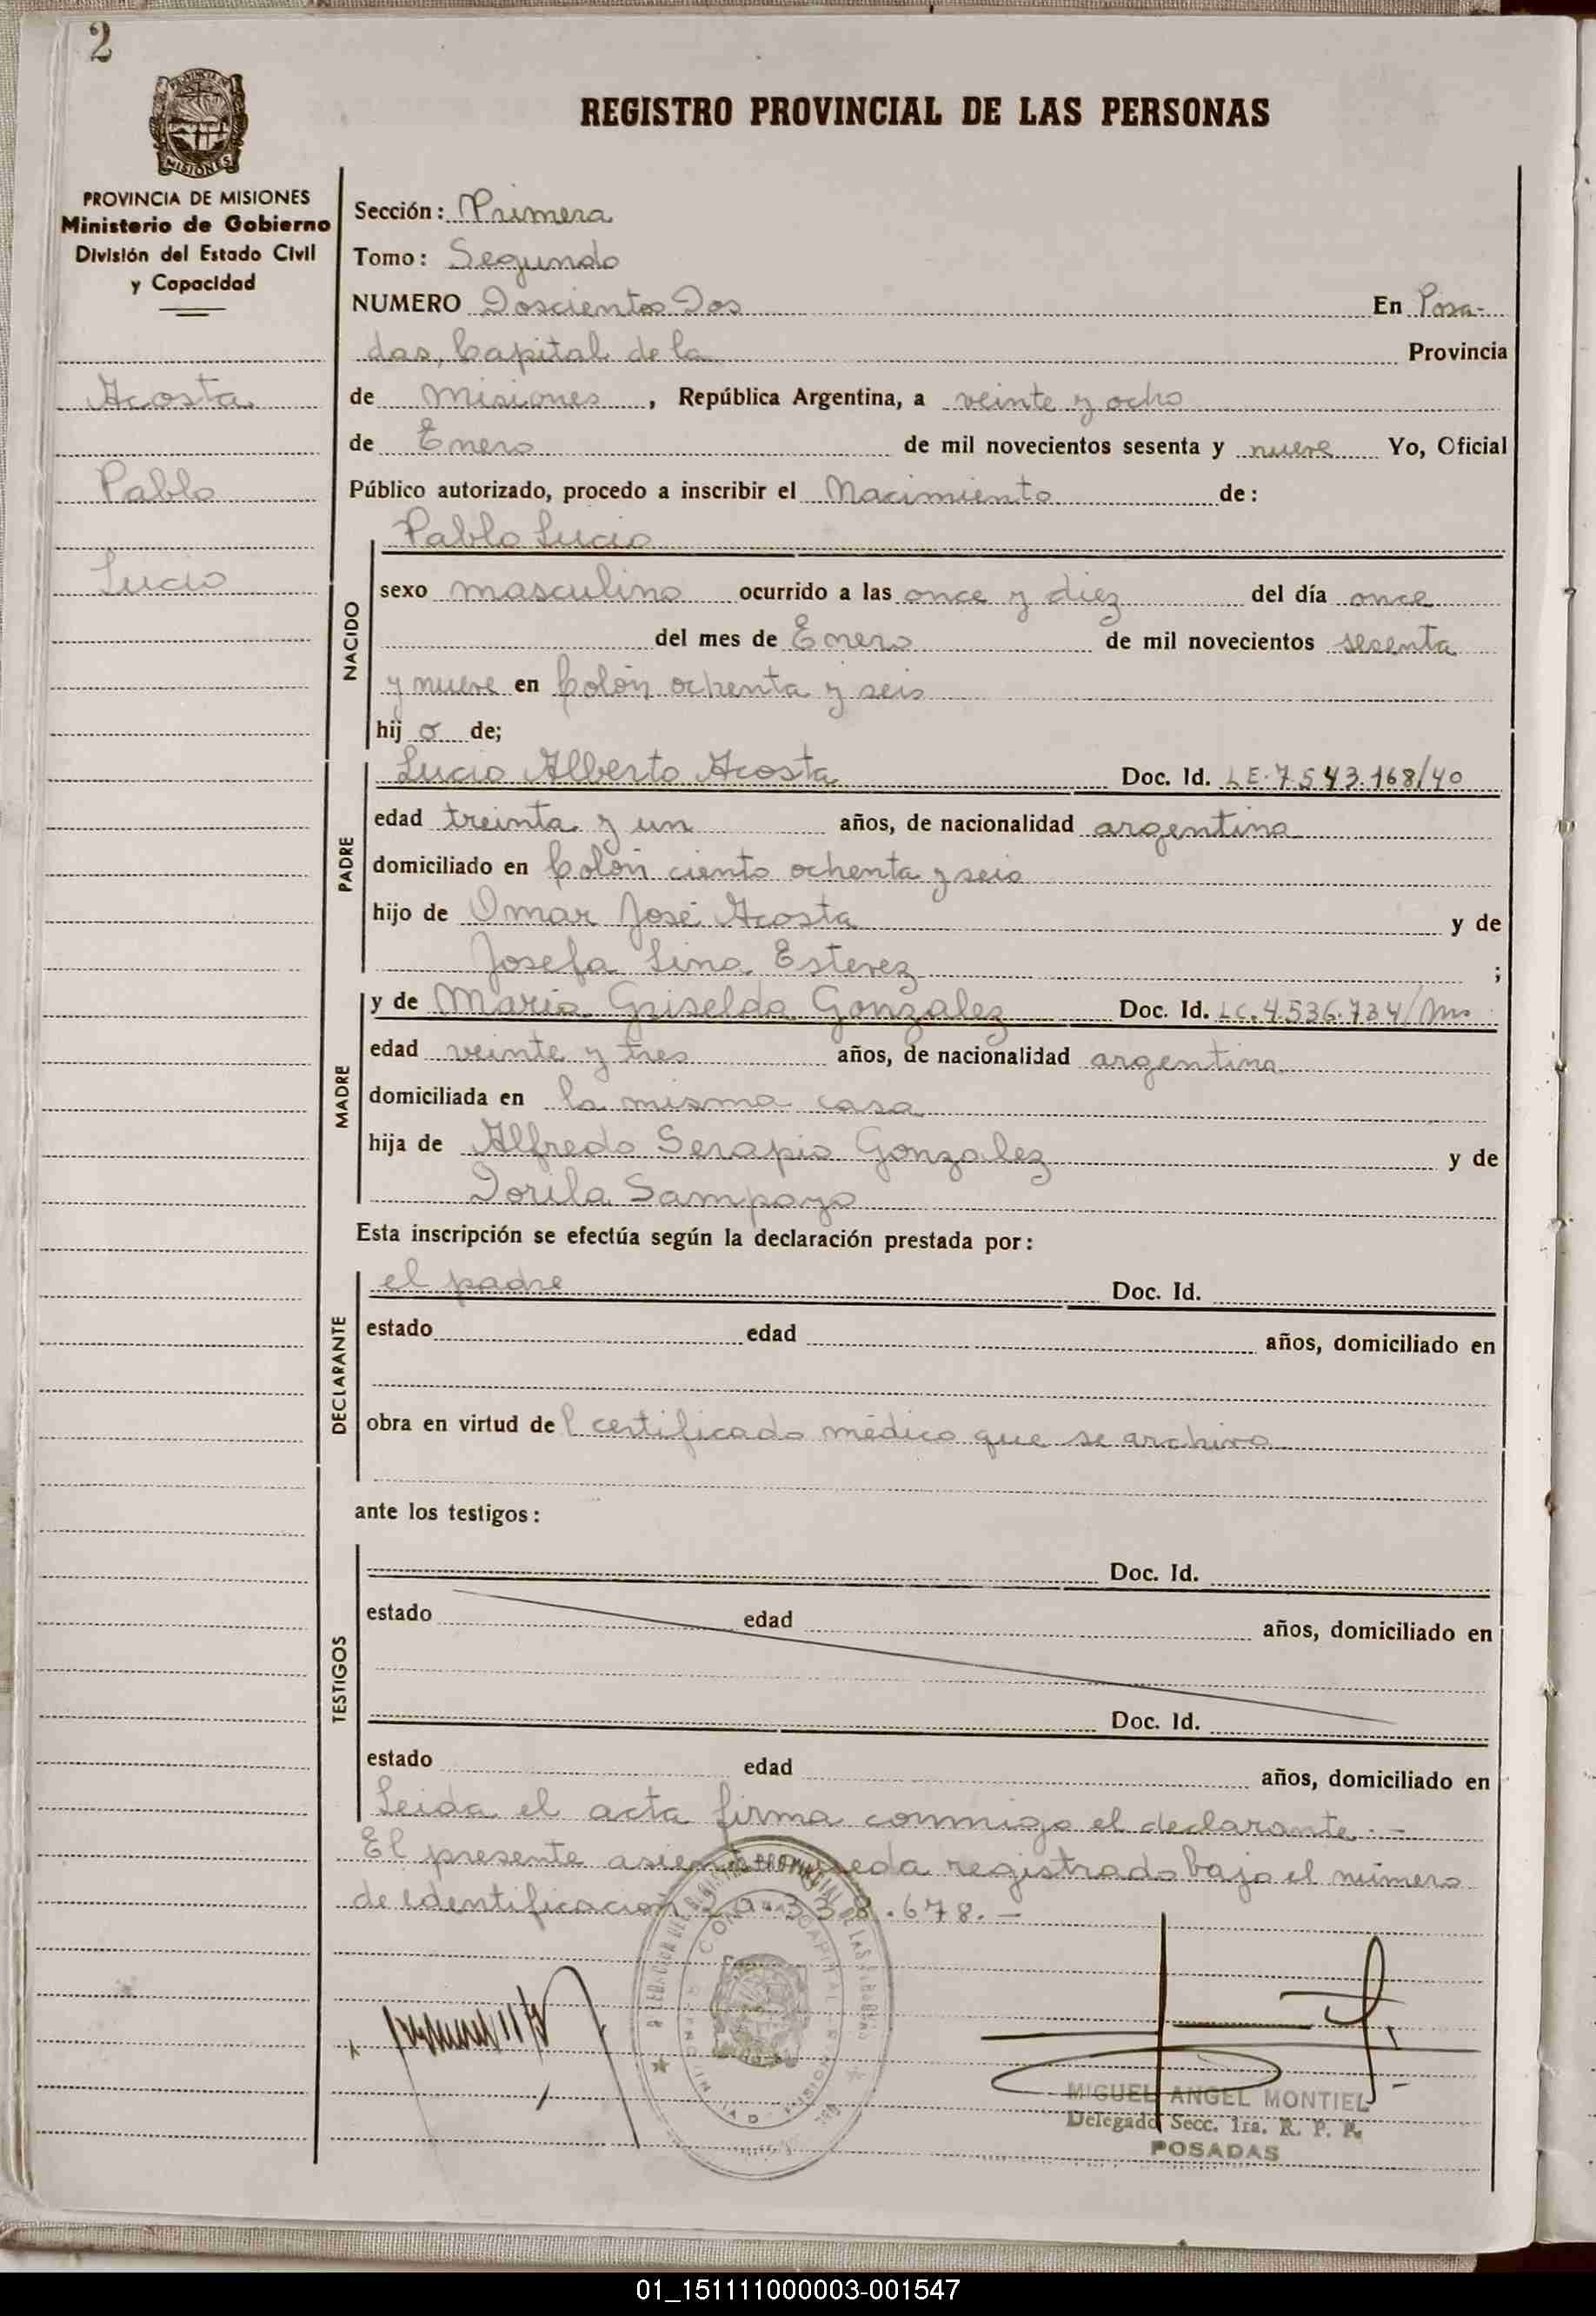 2
PROVINCIA DE
MISIONES
PROVINCIA DE MISIONES
Ministerio de Gobierno
División del Estado Civil
y Capacidad
Acosta
Pablo
Lucio
REGISTRO PROVINCIAL DE LAS PERSONAS
Sección: Primera
Tomo: Segundo
NUMERO Doscientos Dos En Posa-
das, Capital de la Provincia
de Misiones, República Argentina, a veinte y ocho
de Enero de mil novecientos sesenta y nueve Yo, Oficial
Público autorizado, procedo a inscribir el Nacimiento de:
NACIDO
Pablo Lucio
sexo masculino ocurrido a las once y diez del día once
del mes de Enero de mil novecientos sesenta
y nueve en Colón ochenta y seis
hij o de;
PADRE
Lucio Alberto Acosta Doc. Id. LE.7.543.168/40
edad treinta y un años, de nacionalidad argentina
domiciliado en Colón ciento ochenta y seis
hijo de Omar José Acosta y de
Josefa Lina Estevez ;
MADRE
y de María Griselda Gonzalez Doc. Id. LC.4.536.734/Ms
edad veinte y tres años, de nacionalidad argentina
domiciliada en la misma casa
hija de Alfredo Serapio Gonzalez y de
Dorila Sampayo
Esta inscripción se efectúa según la declaración prestada por:
DECLARANTE
el padre Doc. Id.
estado edad años, domiciliado en
obra en virtud de l certificado médico que se archiva
ante los testigos:
TESTIGOS
Doc. Id.
estado edad años, domiciliado en
Doc. Id.
estado edad años, domiciliado en
Leida el acta firma conmigo el declarante.-
El presente asiento queda registrado bajo el número
de identificacion 338.678.-
MIGUEL ANGEL MONTIEL
Delegado Secc. 1ra. R. P. P.
POSADAS
01_151111000003-001547